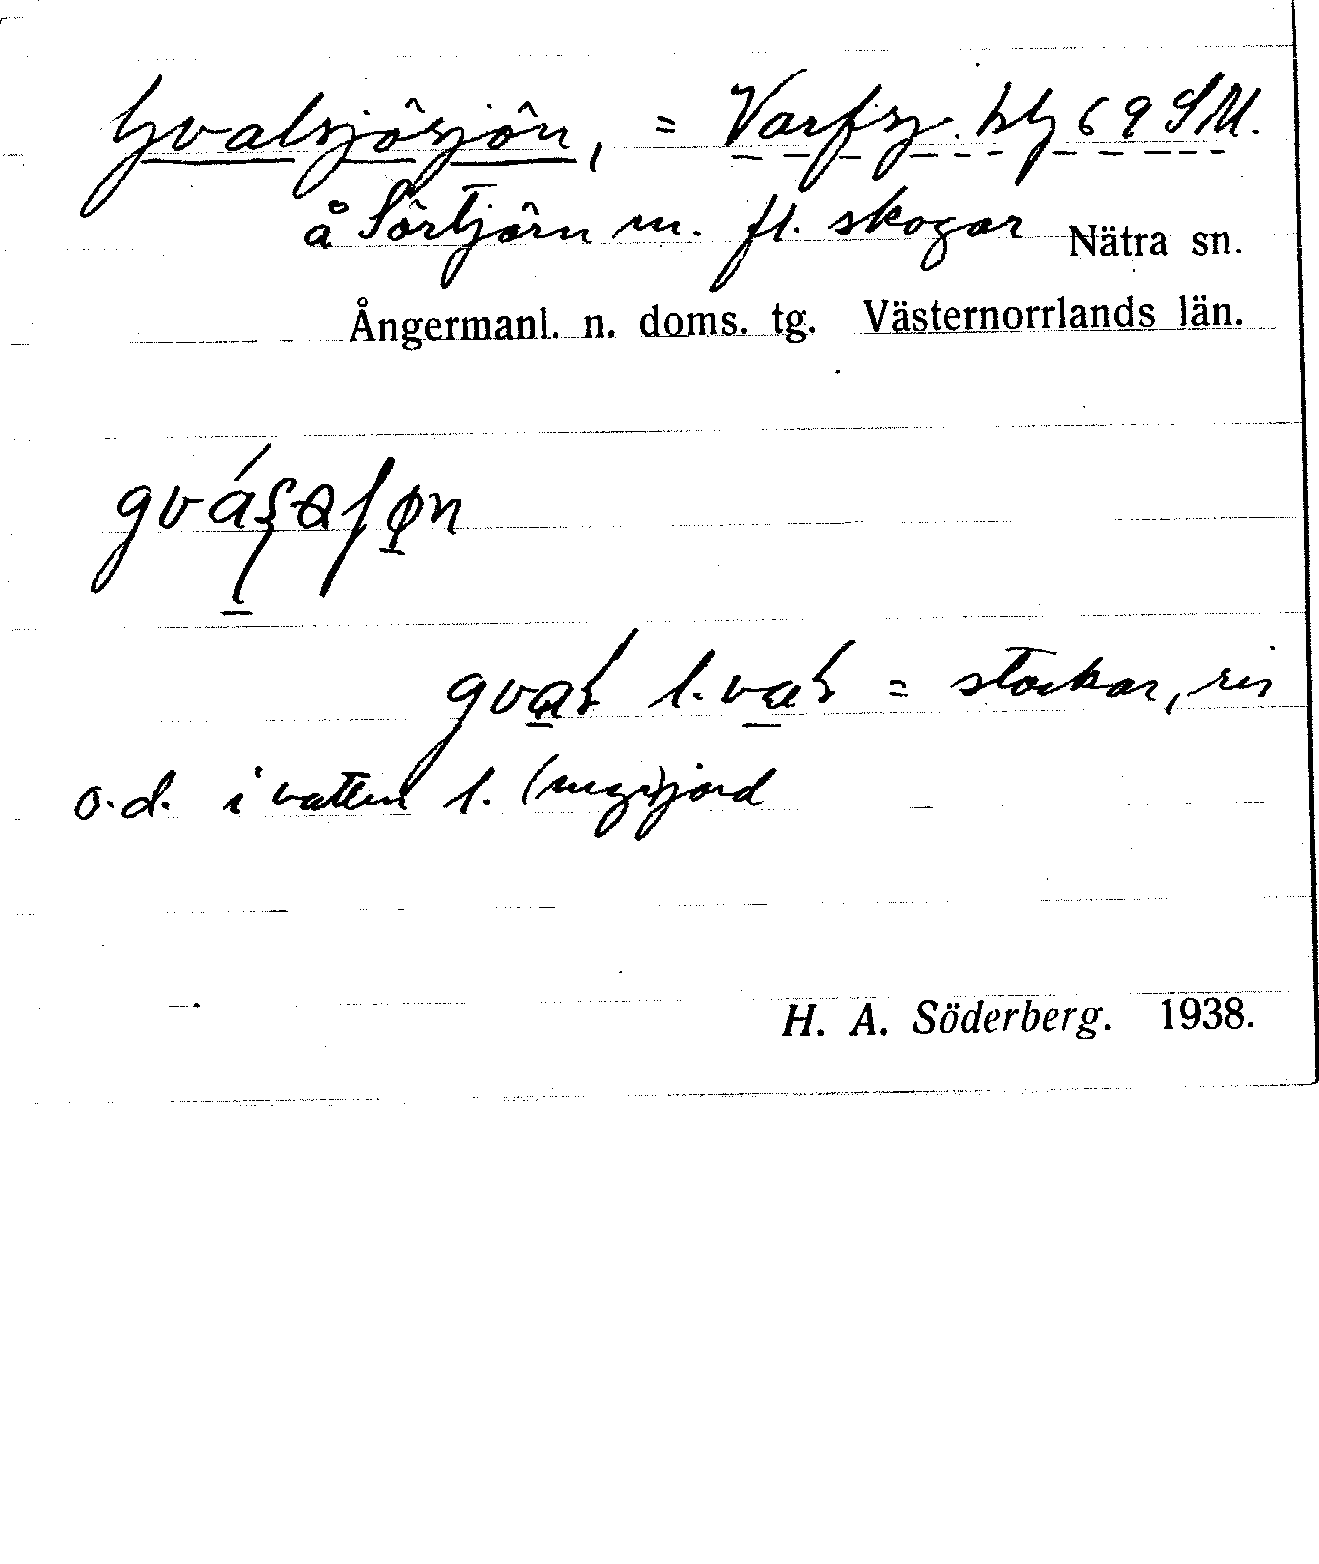 Gvalsjösjön, = Varfsj. blg 69 SM.
å Sörtjärn m. fl. skogar Nätra sn.
Ångermanl. n. doms. tg. Västernorrlands län.
l. = stockar, ris
o.d. i vatten l. (myr)jord
H. A. Söderberg. 1938.